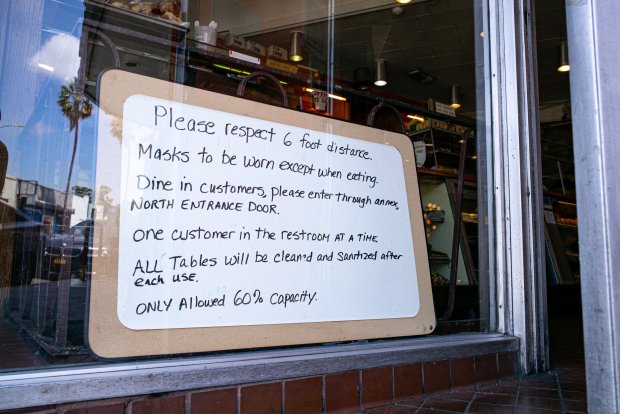 Please respect 6 foot distance.
Masks to be worn except when eating.
Dine in customers, please enter through annex,
NORTH ENTRANCE DOOR.
ONE CUSTOMER in the RESTROOM AT A TIME
ALL Tables will be cleaned and Sanitized after
each USE.
ONLY Allowed 60% Capacity.